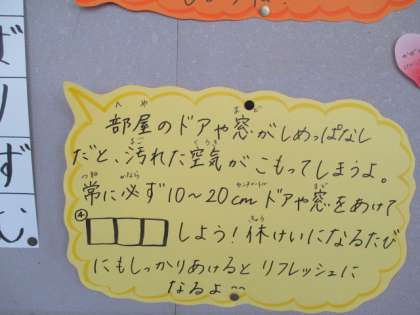 部屋のドアや窓がしめっぱなし
だと、汚れた空気がこもってしまうよ。
常に必ず10~20cmドアや窓をあけて
④□□□しよう!休けいになるたび
にもしっかりあけるとリフレッシュに
なるよ~~
ず
む。